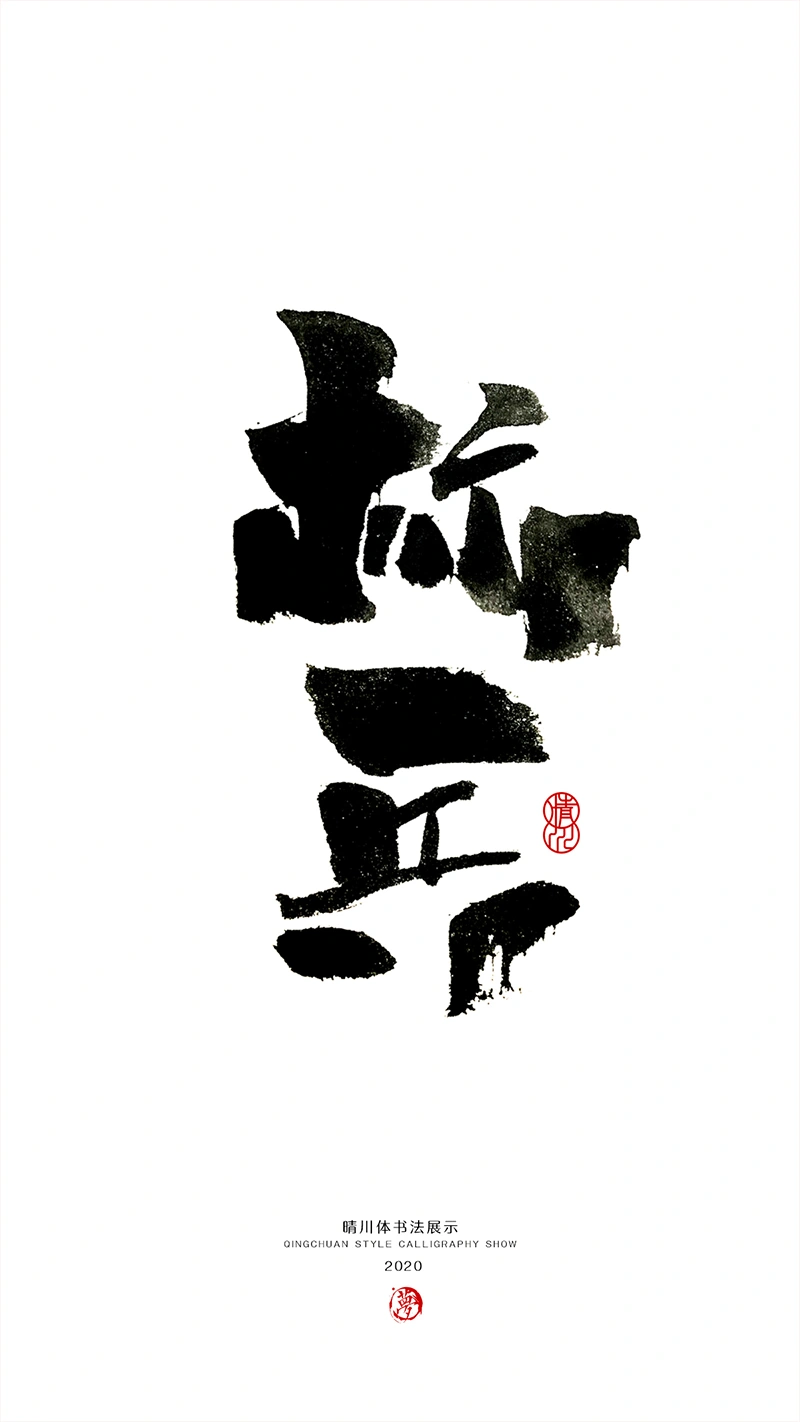 标
兵
晴川
晴川体书法展示
QINGCHUAN STYLE CALLIGRAPHY SHOW
2020
夢